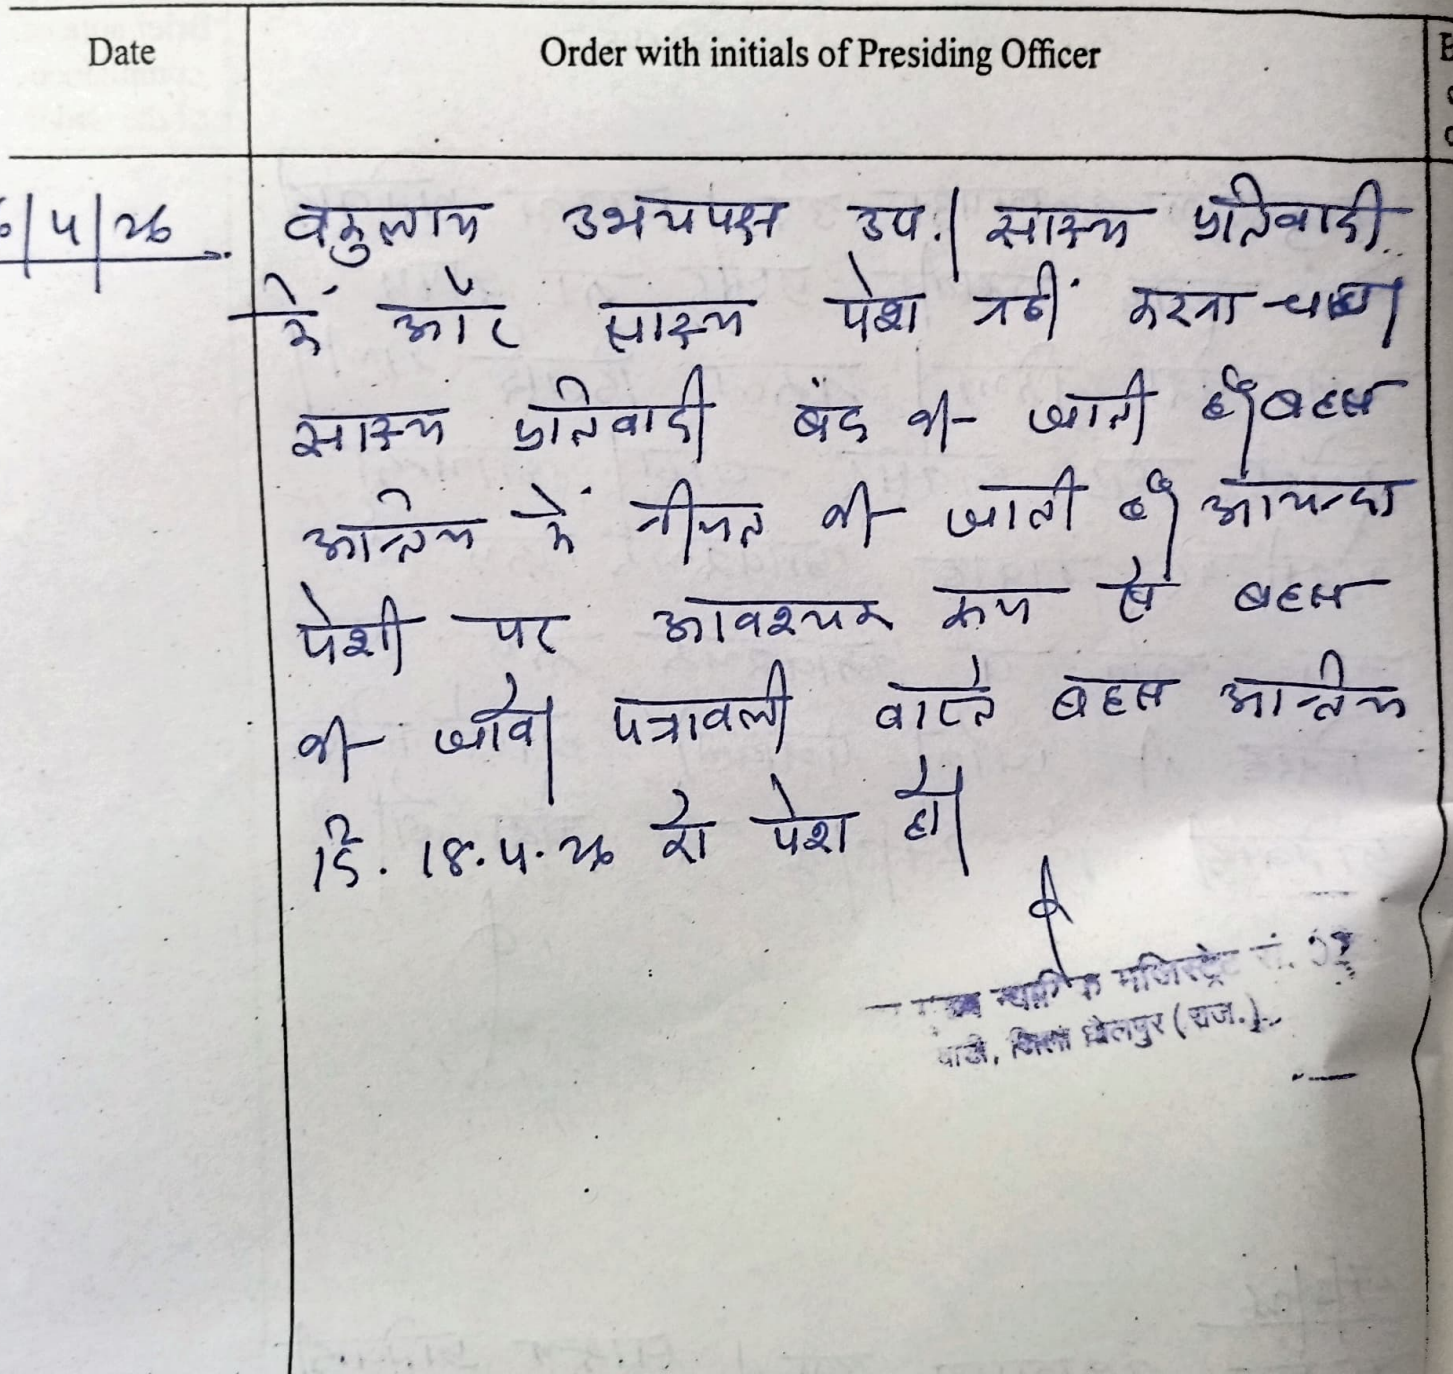 Date Order with initials of Presiding Officer
6/4/26 वकुलाय उभयपक्ष उप.। साक्ष्य प्रतिवादी
में और साक्ष्य पेश नहीं करना चाहा।
साक्ष्य प्रतिवादी बंद की जाती है। बहस
अन्तिम में नीयत की जाती है। आयन्दा
पेशी पर आवश्यक रूप से बहस
की जावे। पत्रावली वास्ते बहस अन्तिम
दि. 18.4.26 को पेश हो।
न्यायिक मजिस्ट्रेट सं.
बाडी, जिला धौलपुर (राज.)